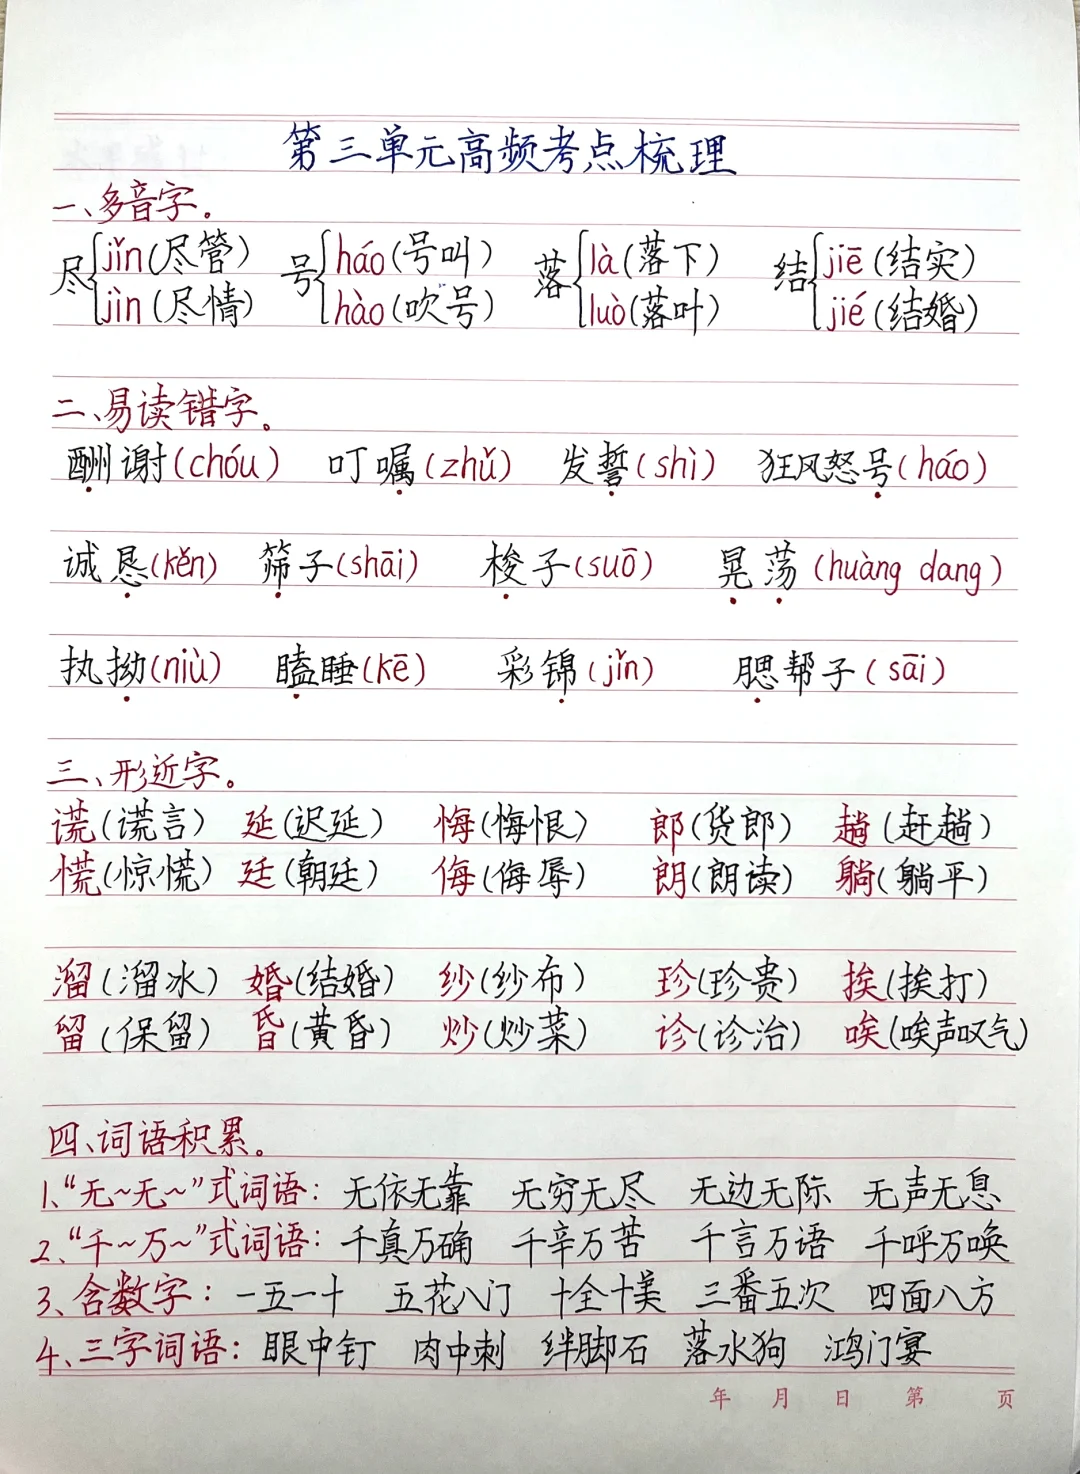 第三单元高频考点梳理
一、多音字。
尽{jǐn(尽管) 号{háo(号叫) 落{là(落下) 结{jiē(结实)
jìn(尽情) hào(吹号) luò(落叶) jié(结婚)
二、易读错字。
酬谢(chóu) 叮嘱(zhǔ) 发誓(shì) 狂风怒号(háo)
诚恳(kěn) 筛子(shāi) 梭子(suō) 晃荡(huàng dang)
执拗(niù) 瞌睡(kē) 彩锦(jǐn) 腮帮子(sāi)
三、形近字。
谎(谎言) 延(迟延) 悔(悔恨) 郎(货郎) 趟(赶趟)
慌(惊慌) 廷(朝廷) 侮(侮辱) 朗(朗读) 躺(躺平)
溜(溜冰) 婚(结婚) 纱(纱布) 珍(珍贵) 挨(挨打)
留(保留) 昏(黄昏) 炒(炒菜) 诊(诊治) 唉(唉声叹气)
四、词语积累。
1、“无~无~”式词语：无依无靠 无穷无尽 无边无际 无声无息
2、“千~万~”式词语：千真万确 千辛万苦 千言万语 千呼万唤
3、含数字：一五一十 五花八门 十全十美 三番五次 四面八方
4、三字词语：眼中钉 肉中刺 绊脚石 落水狗 鸿门宴
年 月 日 第 页